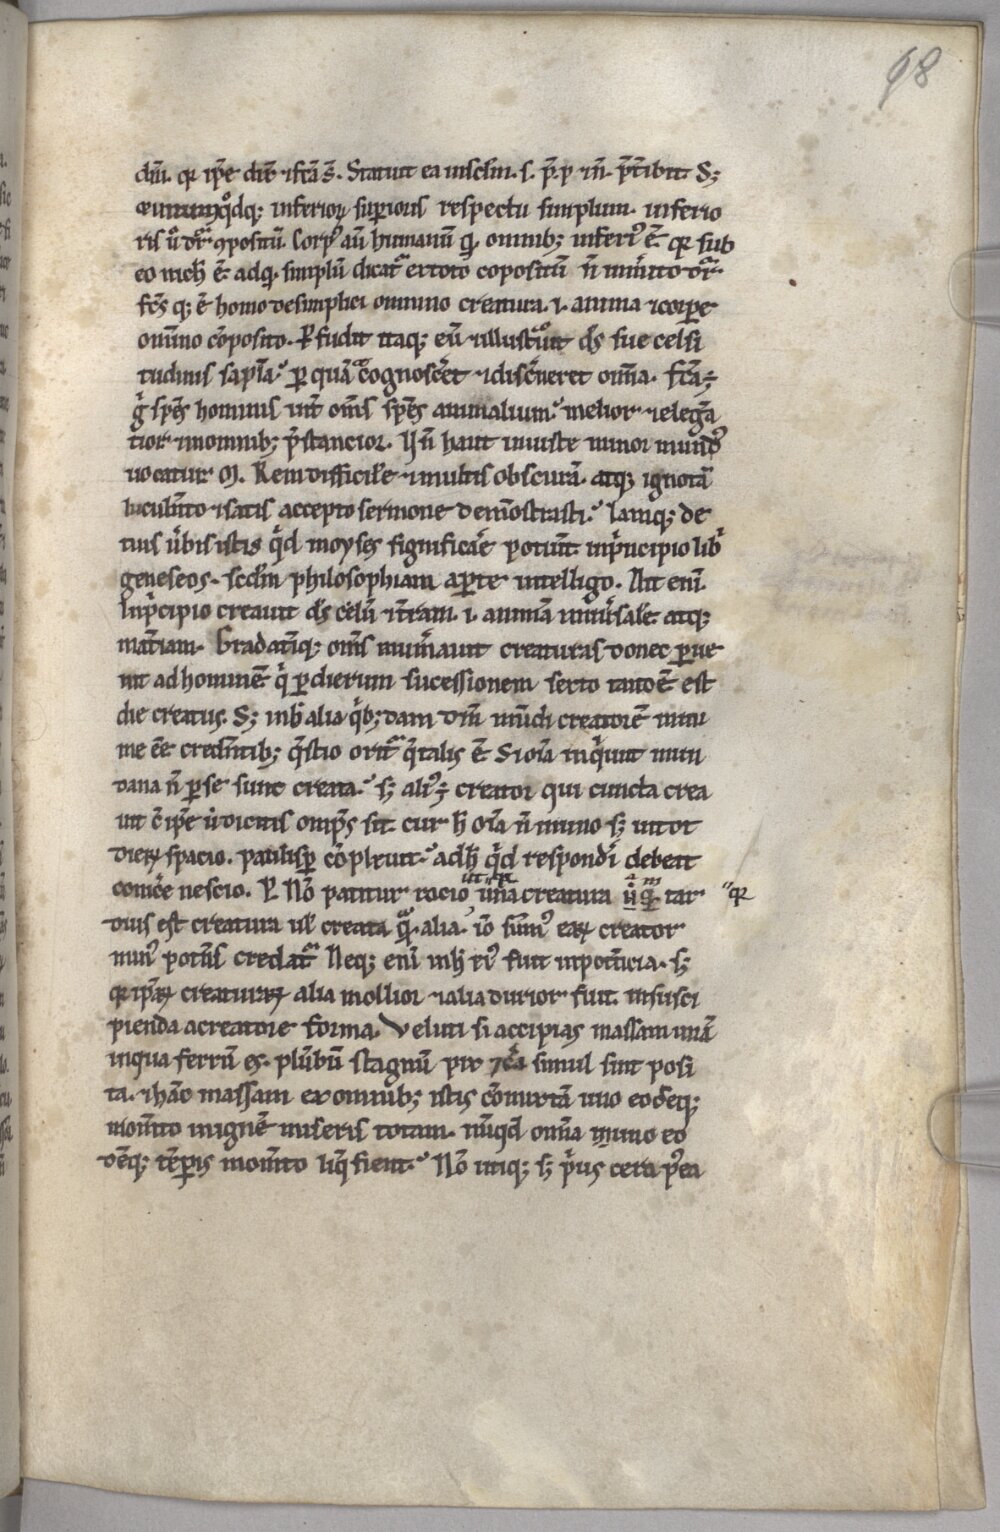 68
dm̄. qr ip̄e dix̄ ⁊ fc̄a s̄. Statuit ea in sc̄lm. s. p̄. p ⁊ n̄. p̄t̄ibit. S;
q; inferioꝝ supioris respectu simplum. inferio
ris u̾o dr̄ ꝯpositū. Corp᷒ aū humanū omnib; inferi᷒ ē. qr sub
eo nich̄ ē. adq. simplū dicat̾ ex toto copositū n̄ inmito dr̄.
fcs q; ē homo de simplici omnino creatura. i. anima ⁊ corpe
omīno cōposito. Pfudit itaq; eū ⁊ illust̾uit ds̄ sue celsi
tudinis sapīa. p quā cognosc̾et ⁊ disc̾neret om̄a. fc̄a ē
g̾ sp̄es hominis int̾ om̄s sp̄es animalium. melior ⁊ elegā
tior ⁊ in omnib; p̄stancior. Vn̄ haut iniuste minor mund᷒
uocatur. M. Rem difficile ⁊ multis obscurā. atq; ignotā
luculēto ⁊ satis accepto sermone demōstrasti. Iamq; de
tuis u̾bis istis qd̾ moyses significare potuit in p̄ncipio lib̾
geneseos. scdm philosophiam apte intelligo. Ait enī
In p̾cipio creauit ds̄ celū ⁊ t̄ram. i. animā uniu̾sale. atq;
mat̄iam. Gradatīq; om̄s num̾auit creaturas donec puē
nit ad hominē q̾ p dierum sucessionem sexto tandē est
die creatus. S; in h̾ alia q̾b; dam dm̄ mūdi creatorē mini
me ēe credn̄tib; q̄stio orit̾ q̄ talis ē. Si oīa inq̾unt mun
dana n̄ p se sunt creata. s; ali᷒ ē creator qui cuncta crea
uit ⁊ ip̄e u̾ dicitis omps̄ sit. cur h̄ oīa n̄ in uno s; in tot
dieꝝ spacio. paulisp cōpleuit. ad h̄ qd̾ respondi̾ debeat
conicē nescio. P. Nō patitur racio ut una creatura tar "qr
diuis est creatura ul̾ creata q̾. alia. iō sum᷒ eaꝝ creator
min᷒ potēs credat̾. Neq; enī in h̄ ei᷒ fuit inpotēcia. s;
qr ip̄aꝝ creaturaꝝ alia mollior ⁊ alia durior fuit. in susci
pienda a creatore forma. Veluti si accipias massam unā
in qua ferrū es. plūbū stagnū pix ⁊ c̄a simul sint posi
ta. ⁊ hāc massam ex omnib; istis cōmixtā uno eodēq;
momēto in ignē miseris totam. nūqd om̄a in uno eo
dēq; tēpis momēto liq̄fient. Nō utiq; s; p̾us cera p̾ea